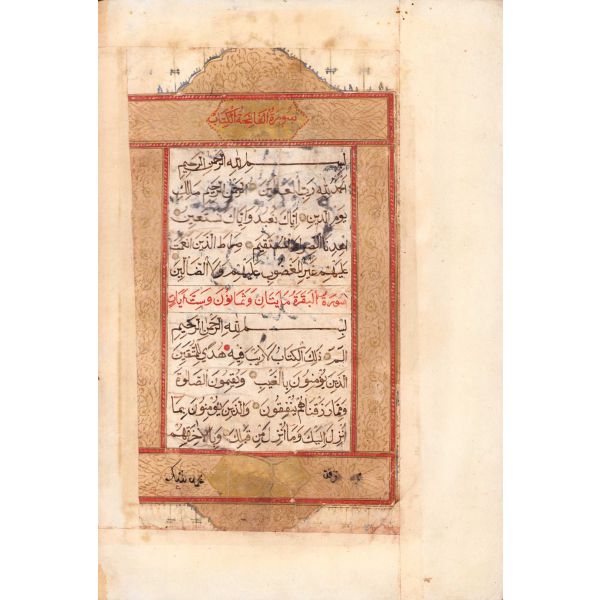 سورة الفاتحة الكتاب
بسم الله الرحمن الرحيم
الحمد لله رب العالمين الرحمن الرحيم مالك
يوم الدين اياك نعبد واياك نستعين
اهدنا الصراط المستقيم صراط الذين انعمت
عليهم غير المغضوب عليهم ولا الضالين
سورة البقرة مايتان وثمانون وست ايات
بسم الله الرحمن الرحيم
الم ذلك الكتاب لا ريب فيه هدى للمتقين
الذين يؤمنون بالغيب ويقيمون الصلوة
ومما رزقناهم ينفقون والذين يؤمنون بما
انزل اليك وما انزل من قبلك وبالاخرة هم